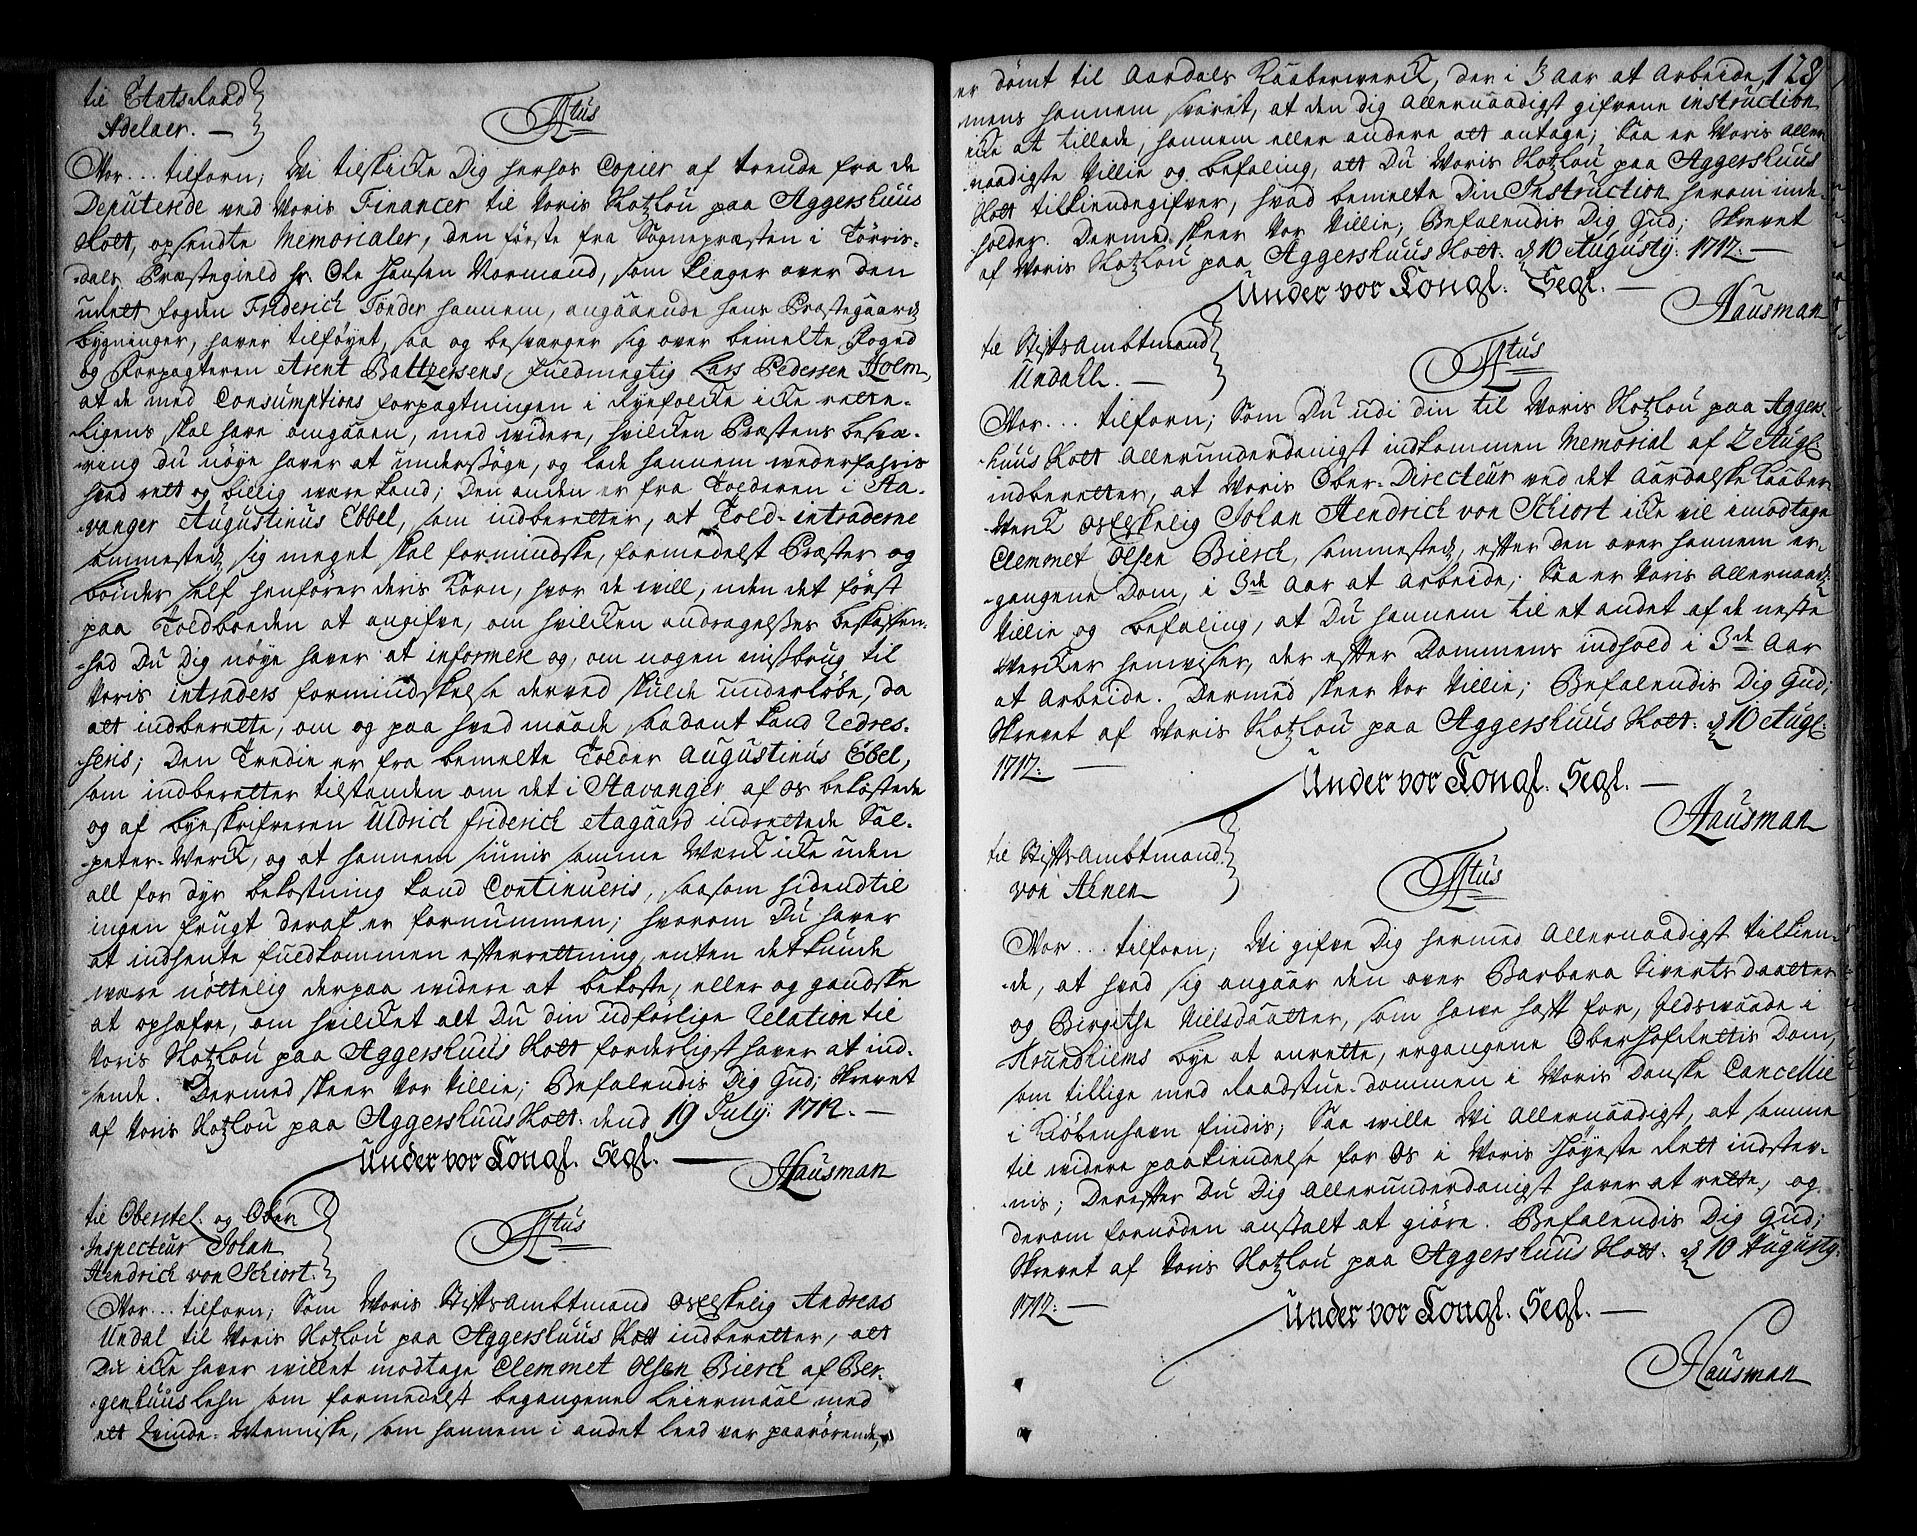 til Etats Raad
Adelaer. —
Vor... tilforn; Wi tilskicke Dig herhos Copier af trende fra de
Deputerede ved Voris Financer til Voris Slotzlou paa Aggershuus
Slott, opsendte Memorialer, den første fra Sognepræsten i Törris-
-dals Præstegield hr. Ole Hansen Normand, som klager over den
urett fogden Friderich Tönder hannem, angaaende hans Præstegaards
bygninger, haver tilføyet, saa og besværger sig over bemelte Foged
og Forpagteren Arent Baltzersens fuldmegtig Lars Pedersen Holm,
at de med Consumptions forpagtningen i Ryefolcke icke rette-
-ligens skal have omgaaen, med widere, hvilcken Præstens besvæ-
-ring du nøye haver at undersøge, og lade hannem wederfahris
hvad rett og billig være kand; Den anden er fra Tolderen i Sta-
-vanger Augustinus Ebbel, som indberetter, at Told-intraderne
sammesteds sig meget skal formindske, formedelst Præster og
bønder self henfører deris Korn, hvor de will, uden det først
paa Toldboeden at angifve, om hvilcken andragelses beskaffen-
-hed Du Dig nøye haver at informere og, om nogen misbrug til
Voris intraders formindskelse derved skulde underløbe, da
alt indberette, om og paa hvad maade saadant kand redres-
seris; Den Tredie er fra bemelte Tolder Augustinus Ebel,
som indberetter tilstanden om det i Stavanger af os bekostede
og af byeskrifveren Uldrich friderich Aagaard indrettede Sal-
-peter-Werck, og at hannem siunis samme Werck icke uden
all for dyr bekostning kand Continueris, saasom hidendtil
ingen frugt deraf er fornummen; hvorom Du haver
at indhente fuldkommen efterrettning, enten det kunde
være nøttelig derpaa widere at bekoste, eller og gandske
at ophæfve, om hvilcket alt Du din udførlige Relation til
Voris Slotzlou paa Aggershuus Slott forderligst haver at ind-
sende. Dermed skeer Vor Villie; Befalendis Dig Gud; Skrevet
af Voris Slotzlou paa Aggershuus Slott. dend 19 July: 1712. —
Under vor Kongl. Segl. —
Hausman
til Oberstel. og Ober
Inspecteur Johan
Hendrich von Schiort.
Vor... tilforn; Som Voris Stiftsambtmand Os Elskelig Andreas
Undal til Voris Slotzlou paa Aggershuus Slott indberetter, att
Du icke haver willet modtage Clemmet Olsen Bierck af Ber-
-genhuus lehn som formedelst begangene leiermaal med
ett Qvinde-Menniske, som hannem i andet leed var paarørende,
128
er dømt til Aardals Kaaberwerck, der i 3 Aar at Arbeide,
mens hannem svaret, at den dig Allernaadigst gifvene instruction
icke at tillade, hannem eller andere att antage; Saa er Voris Aller
naadigste Villie og befaling, att Du Voris Slotzlou paa Aggershuus
Slott tilkiendegifver, hvad bemelte Din Instruction herom inde-
holder. Dermed skeer Vor Villie; Befalendis Dig Gud; Skrevet
af Voris Slotzlou paa Aggershuus Slott. d 10 Augusty: 1712. —
Under vor Kongl. Segl. —
Hausman
til Stiftsambtmand
Undahl. —
Vor... tilforn; Som Du udi din til Voris Slotzlou paa Aggers-
-huus Slott Allerunderdanigst indkommen Memorial af 2 Augl:
indberetter, at Voris Ober-Directeur ved det Aardalske Kaaber
Werck Os Elskelig Johan Hendrich von Schiort icke vil imodtage
Clemmet Olsen Bierck, sammesteds, efter den over hannem er-
-gangene Dom, i 3de Aar at Arbeide; Saa er Voris Allernaad:
Villie og befaling, at Du hannem til et andet af de neste
Wercker henviser, der efter Dommens indhold i 3de Aar
at Arbeide. Dermed skeer Vor Villie; Befalendis Dig Gud;
Skrevet af Voris Slotzlou paa Aggershuus Slott. d 10 Augl:
1712: —
Under vor Kongl. Segl. —
Hausman
til Stiftsambtmand
von Ahnen —
Vor... tilforn; Wi gifve Dig hermed Allernaadigst tilkien-
-de, at hvad sig angaar den over Barbara Siverts daatter
og Birgithe Nielsdaatter, som have haft for, Ildswaade i
Trundhiems bye at anrette, ergangene Oberhofrettis Dom,
som tillige med Raadstue-dommen i Voris Danske Cancellie
i Kiöbenhavn findis; Saa wille Wi Allernaadigst, at samme
til widere paakiendelse for Os i Voris Høyeste Rett indstev-
-nis; Derefter Du Dig Allerunderdanigst haver at rette, og
derom fornøden anstalt at giøre. Befalendis Dig Gud;
Skrevet af Voris Slotzlou paa Aggershuus Slott. d 10 Augusty.
1712: —
Under vor Kongl. Segl. —
Hausman